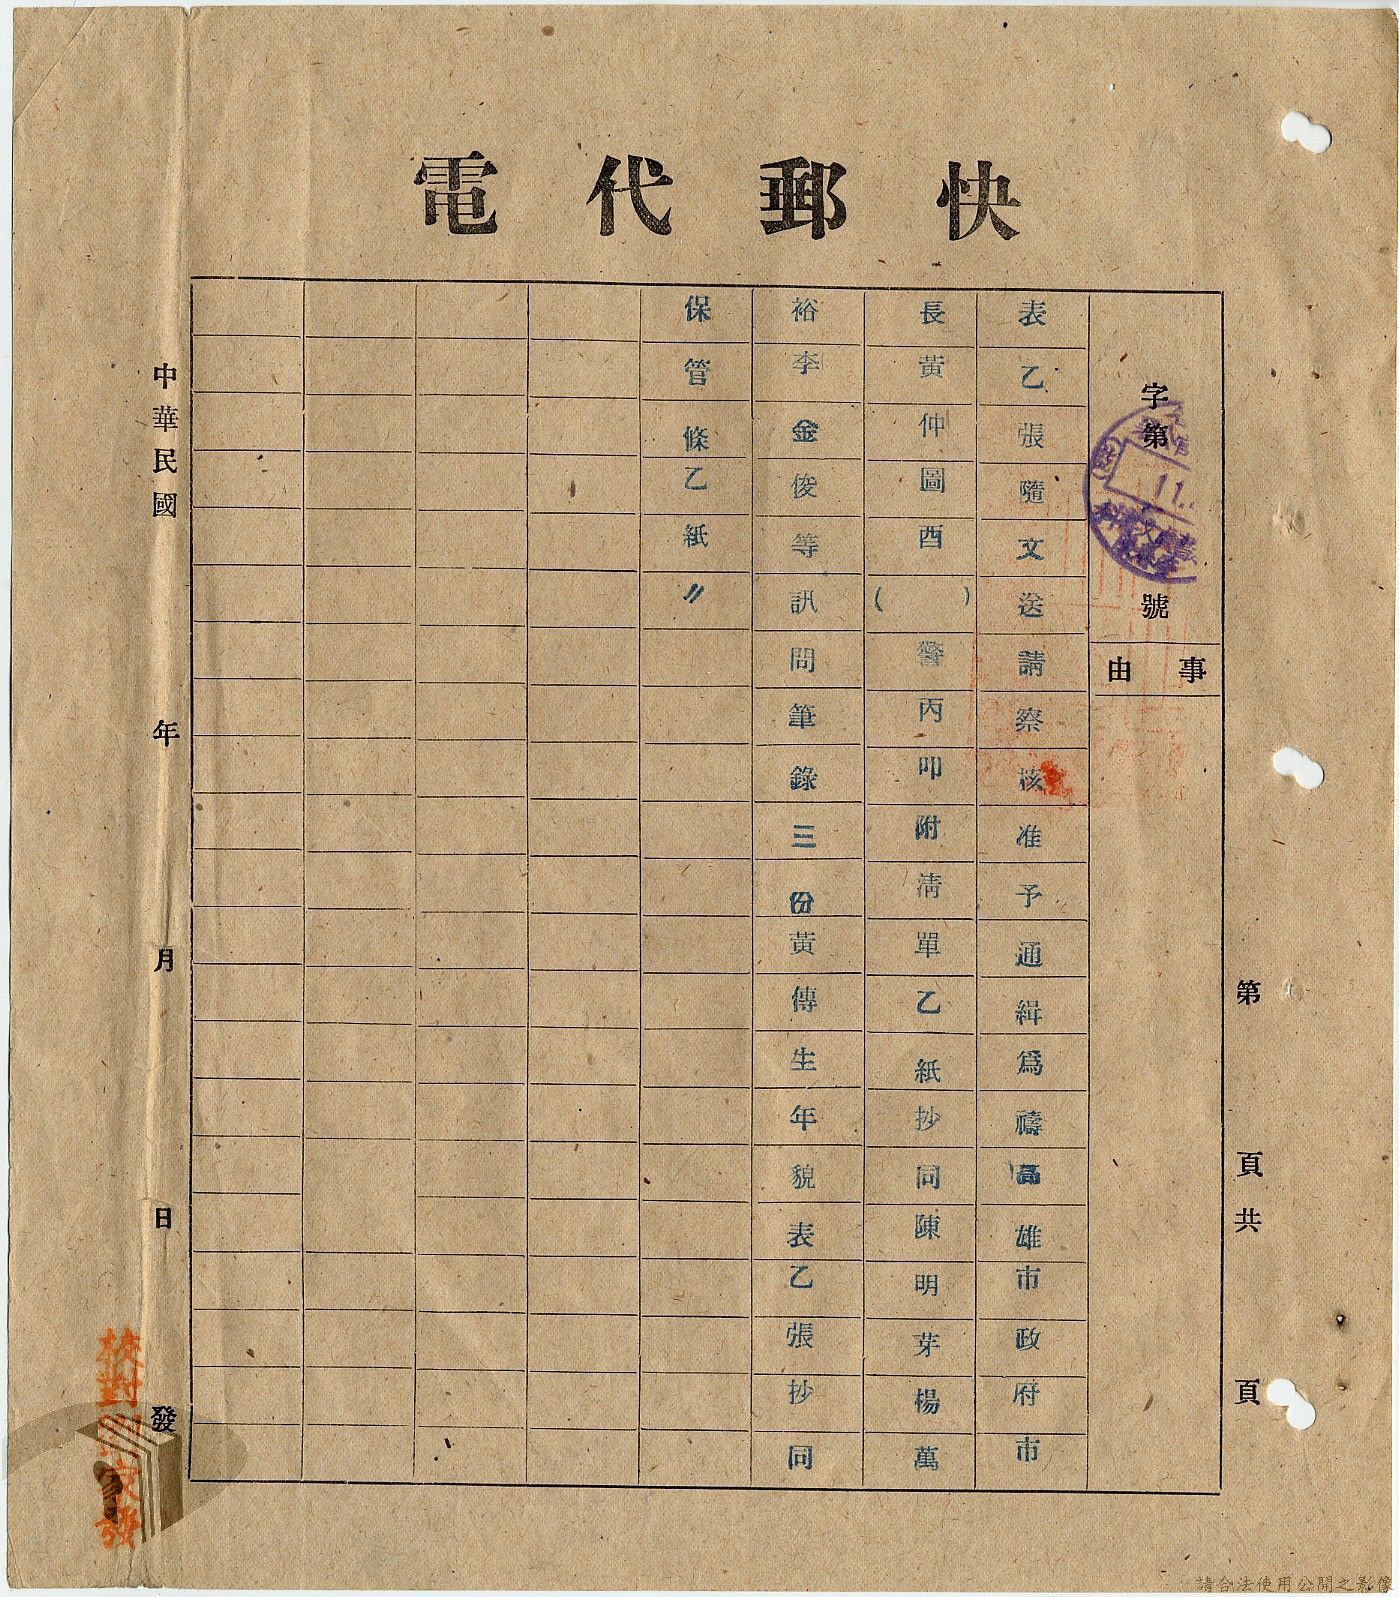 快郵代電
第 頁共 頁
字第 號
事由
11.
表乙張隨文送請察核准予通緝爲禱高雄市政府市
長黃仲圖酉( )警丙叩附淸單乙紙抄同陳明芽楊萬
裕李金俊等訊問筆錄三份黃傳生年貌表乙張抄同
保管條乙紙〃
中華民國 年 月 日 發
校對 發
請合法使用公開之影像